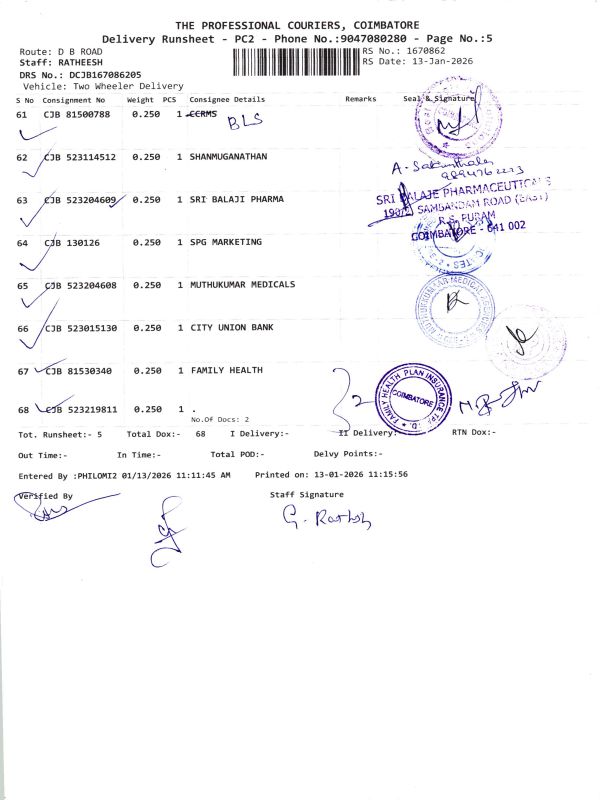 THE PROFESSIONAL COURIERS, COIMBATORE
Delivery Runsheet - PC2 - Phone No.:9047080280 - Page No.:5
Route: D B ROAD
RS No.: 1670862
Staff: RATHEESH
RS Date: 13-Jan-2026
DRS No.: DCJB167086205
Vehicle: Two Wheeler Delivery
S No Consignment No Weight PCS Consignee Details Remarks Seal & Signature
61 CJB 81500788 0.250 1 CCRMS
BLS
62 CJB 523114512 0.250 1 SHANMUGANATHAN
A. Sakunthala
63 CJB 523204609 0.250 1 SRI BALAJI PHARMA
SRI BALAJE PHARMACEUTICALS
SAMBANDAM ROAD (EAST)
R.S. PURAM
COIMBATORE - 641 002
64 CJB 130126 0.250 1 SPG MARKETING
65 CJB 523204608 0.250 1 MUTHUKUMAR MEDICALS
66 CJB 523015130 0.250 1 CITY UNION BANK
67 CJB 81530340 0.250 1 FAMILY HEALTH
2
FAMILY HEALTH PLAN INSURANCE TPA LTD.
COIMBATORE
68 CJB 523219811 0.250 1 .
No.Of Docs: 2
Tot. Runsheet:- 5 Total Dox:- 68 I Delivery:- II Delivery:- RTN Dox:-
Out Time:- In Time:- Total POD:- Delvy Points:-
Entered By :PHILOMI2 01/13/2026 11:11:45 AM Printed on: 13-01-2026 11:15:56
Verified By Staff Signature
G. Rathish